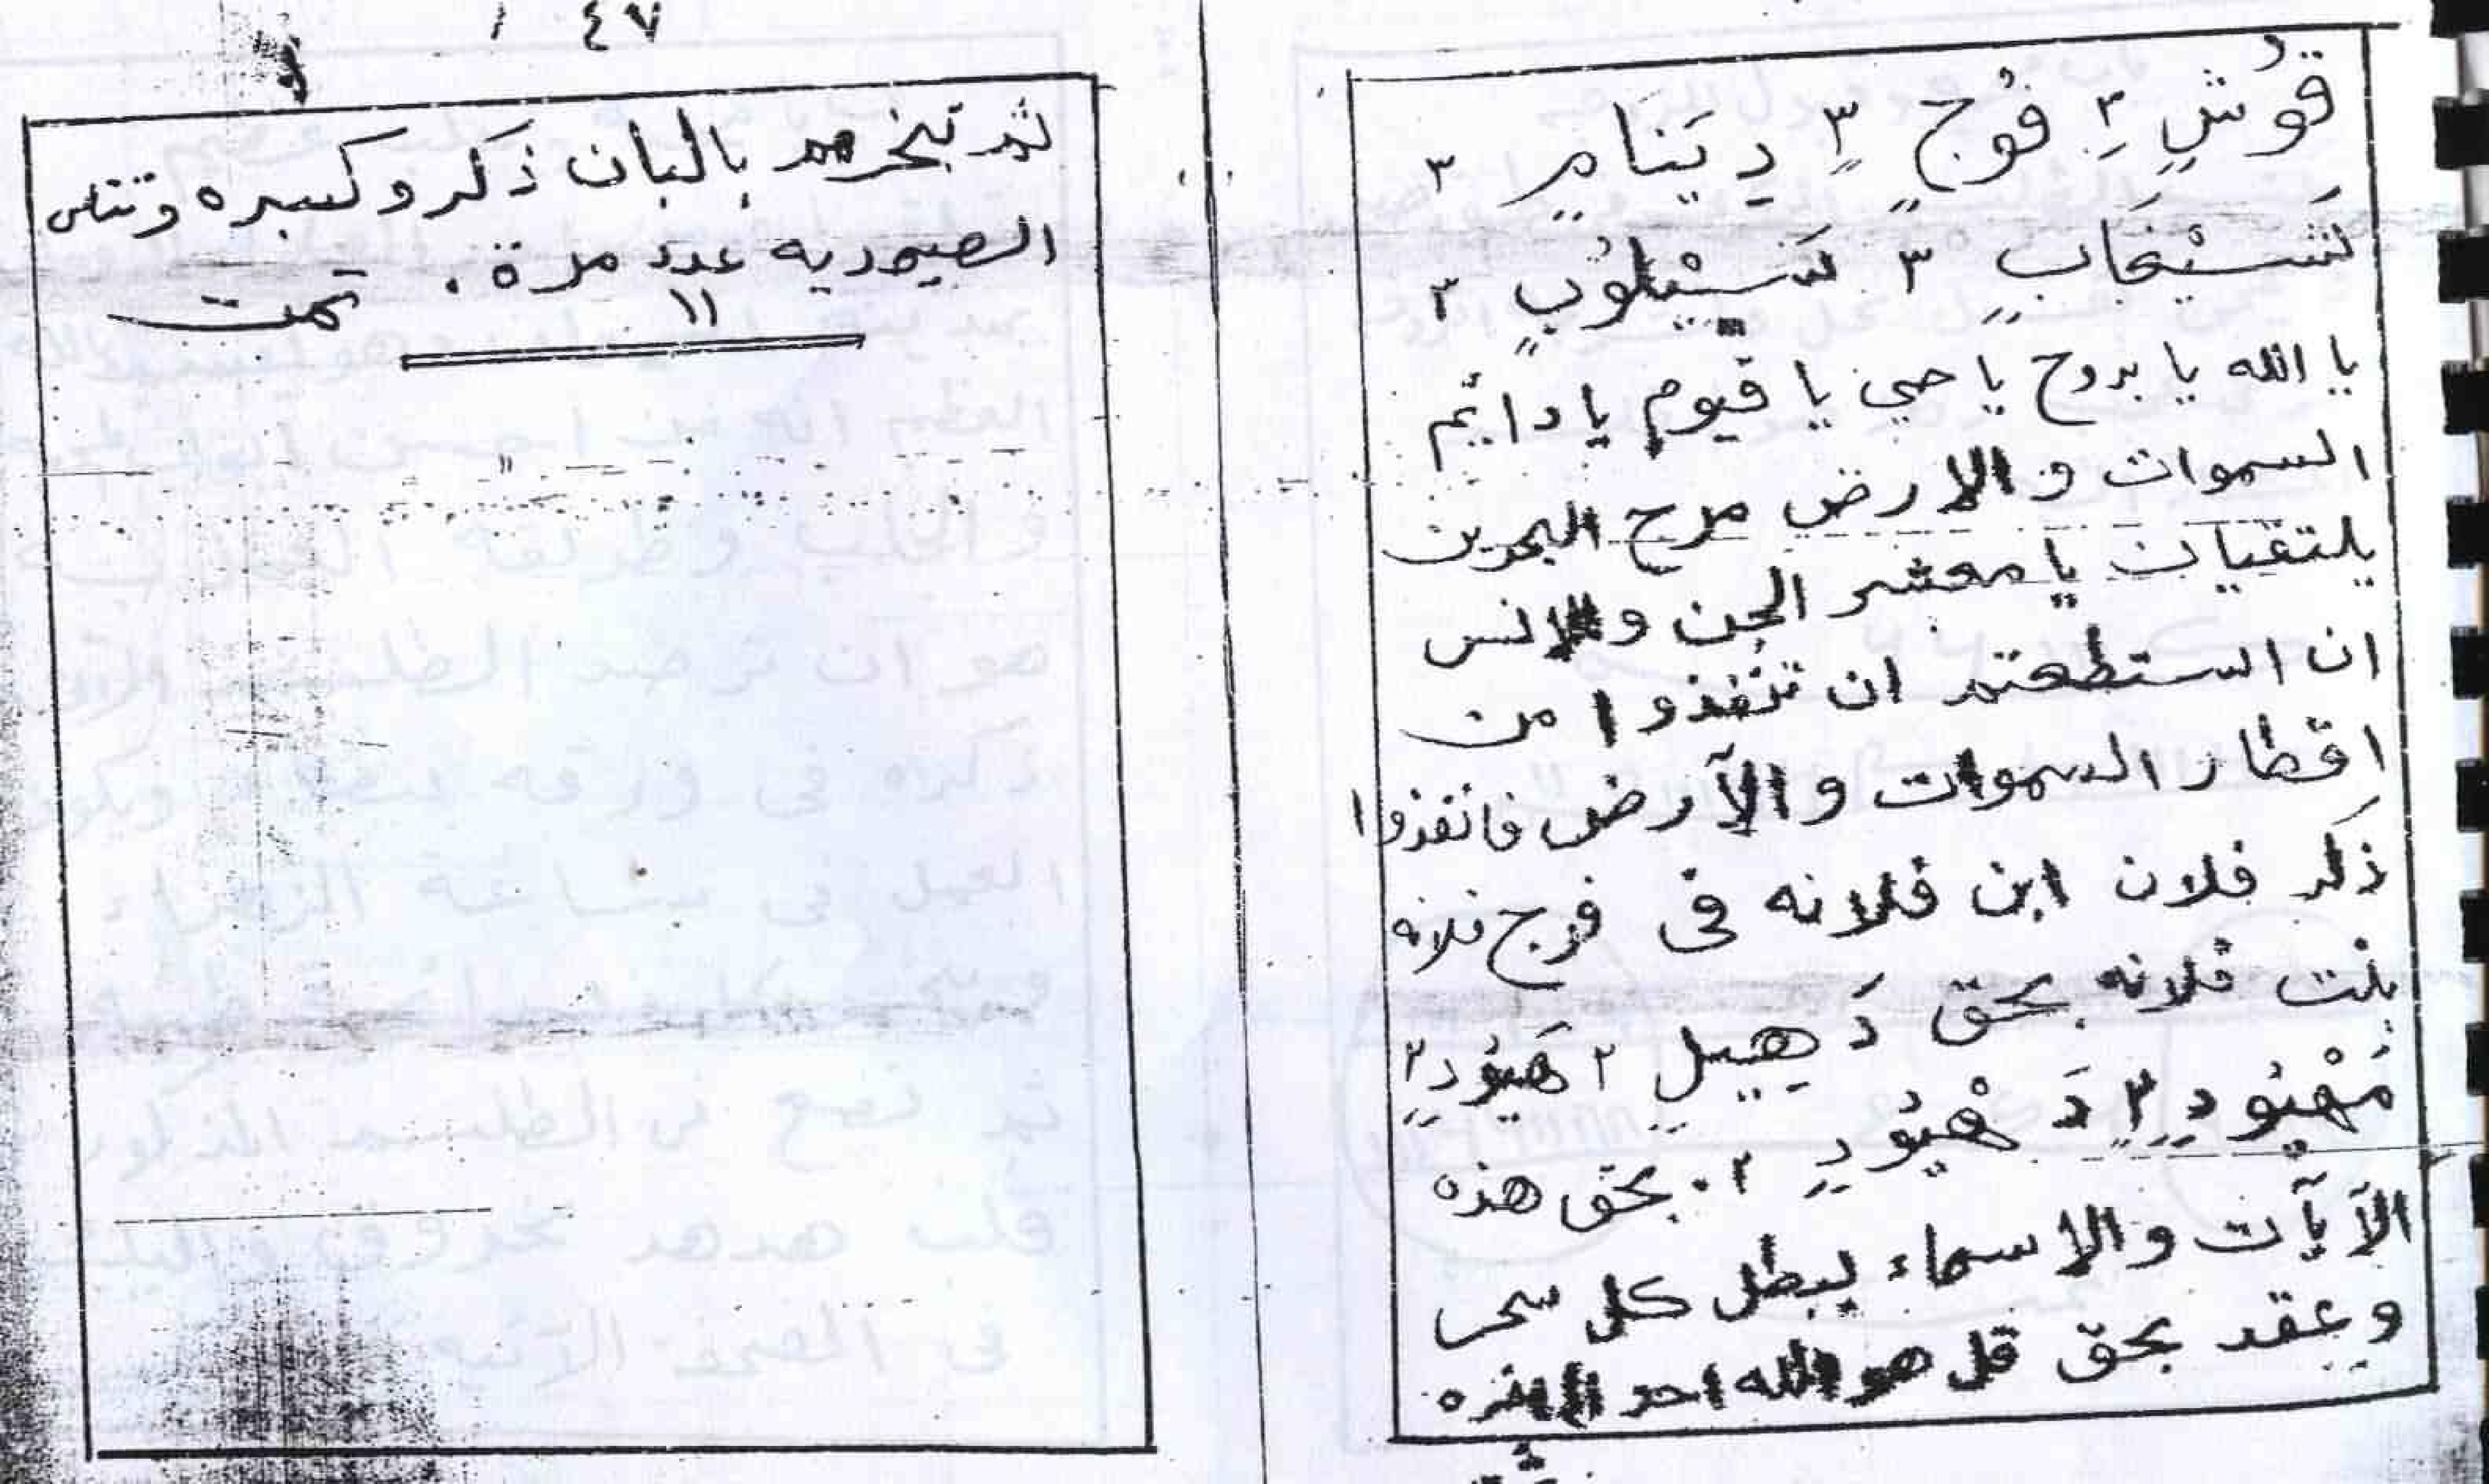 قُوْشٍ ٣ فُوْجٍ ٣ دِيَنَامٍ ٣
شَسْيَخَابٍ ٣ شَسْيَلُوْبٍ ٣
يا الله يا بدوح يا حي يا قيوم يا دائم
السموات و الارض مرج البحرين
يلتقيان يا معشر الجن والانس
ان استطعتم ان تنفذوا من
اقطار السموات و الآرض فانفذوا
ذكر فلان ابن فلانه فى فرج فلانه
بنت فلانه بحق دَهِيَيلٍ ٢ هَيُوُدٍ ٢
مَهْيُودٍ ٢ دَهْيُودٍ ٢ . بحق هذه
الآيآت و الاسماء يبطل كل سحر
وعقد بحق قل هو الله احد
٤٧
ثم تبخرهم بالبان ذكر وكسبره وتتلى
الصيموديه عدد ١١ مرة . تمت